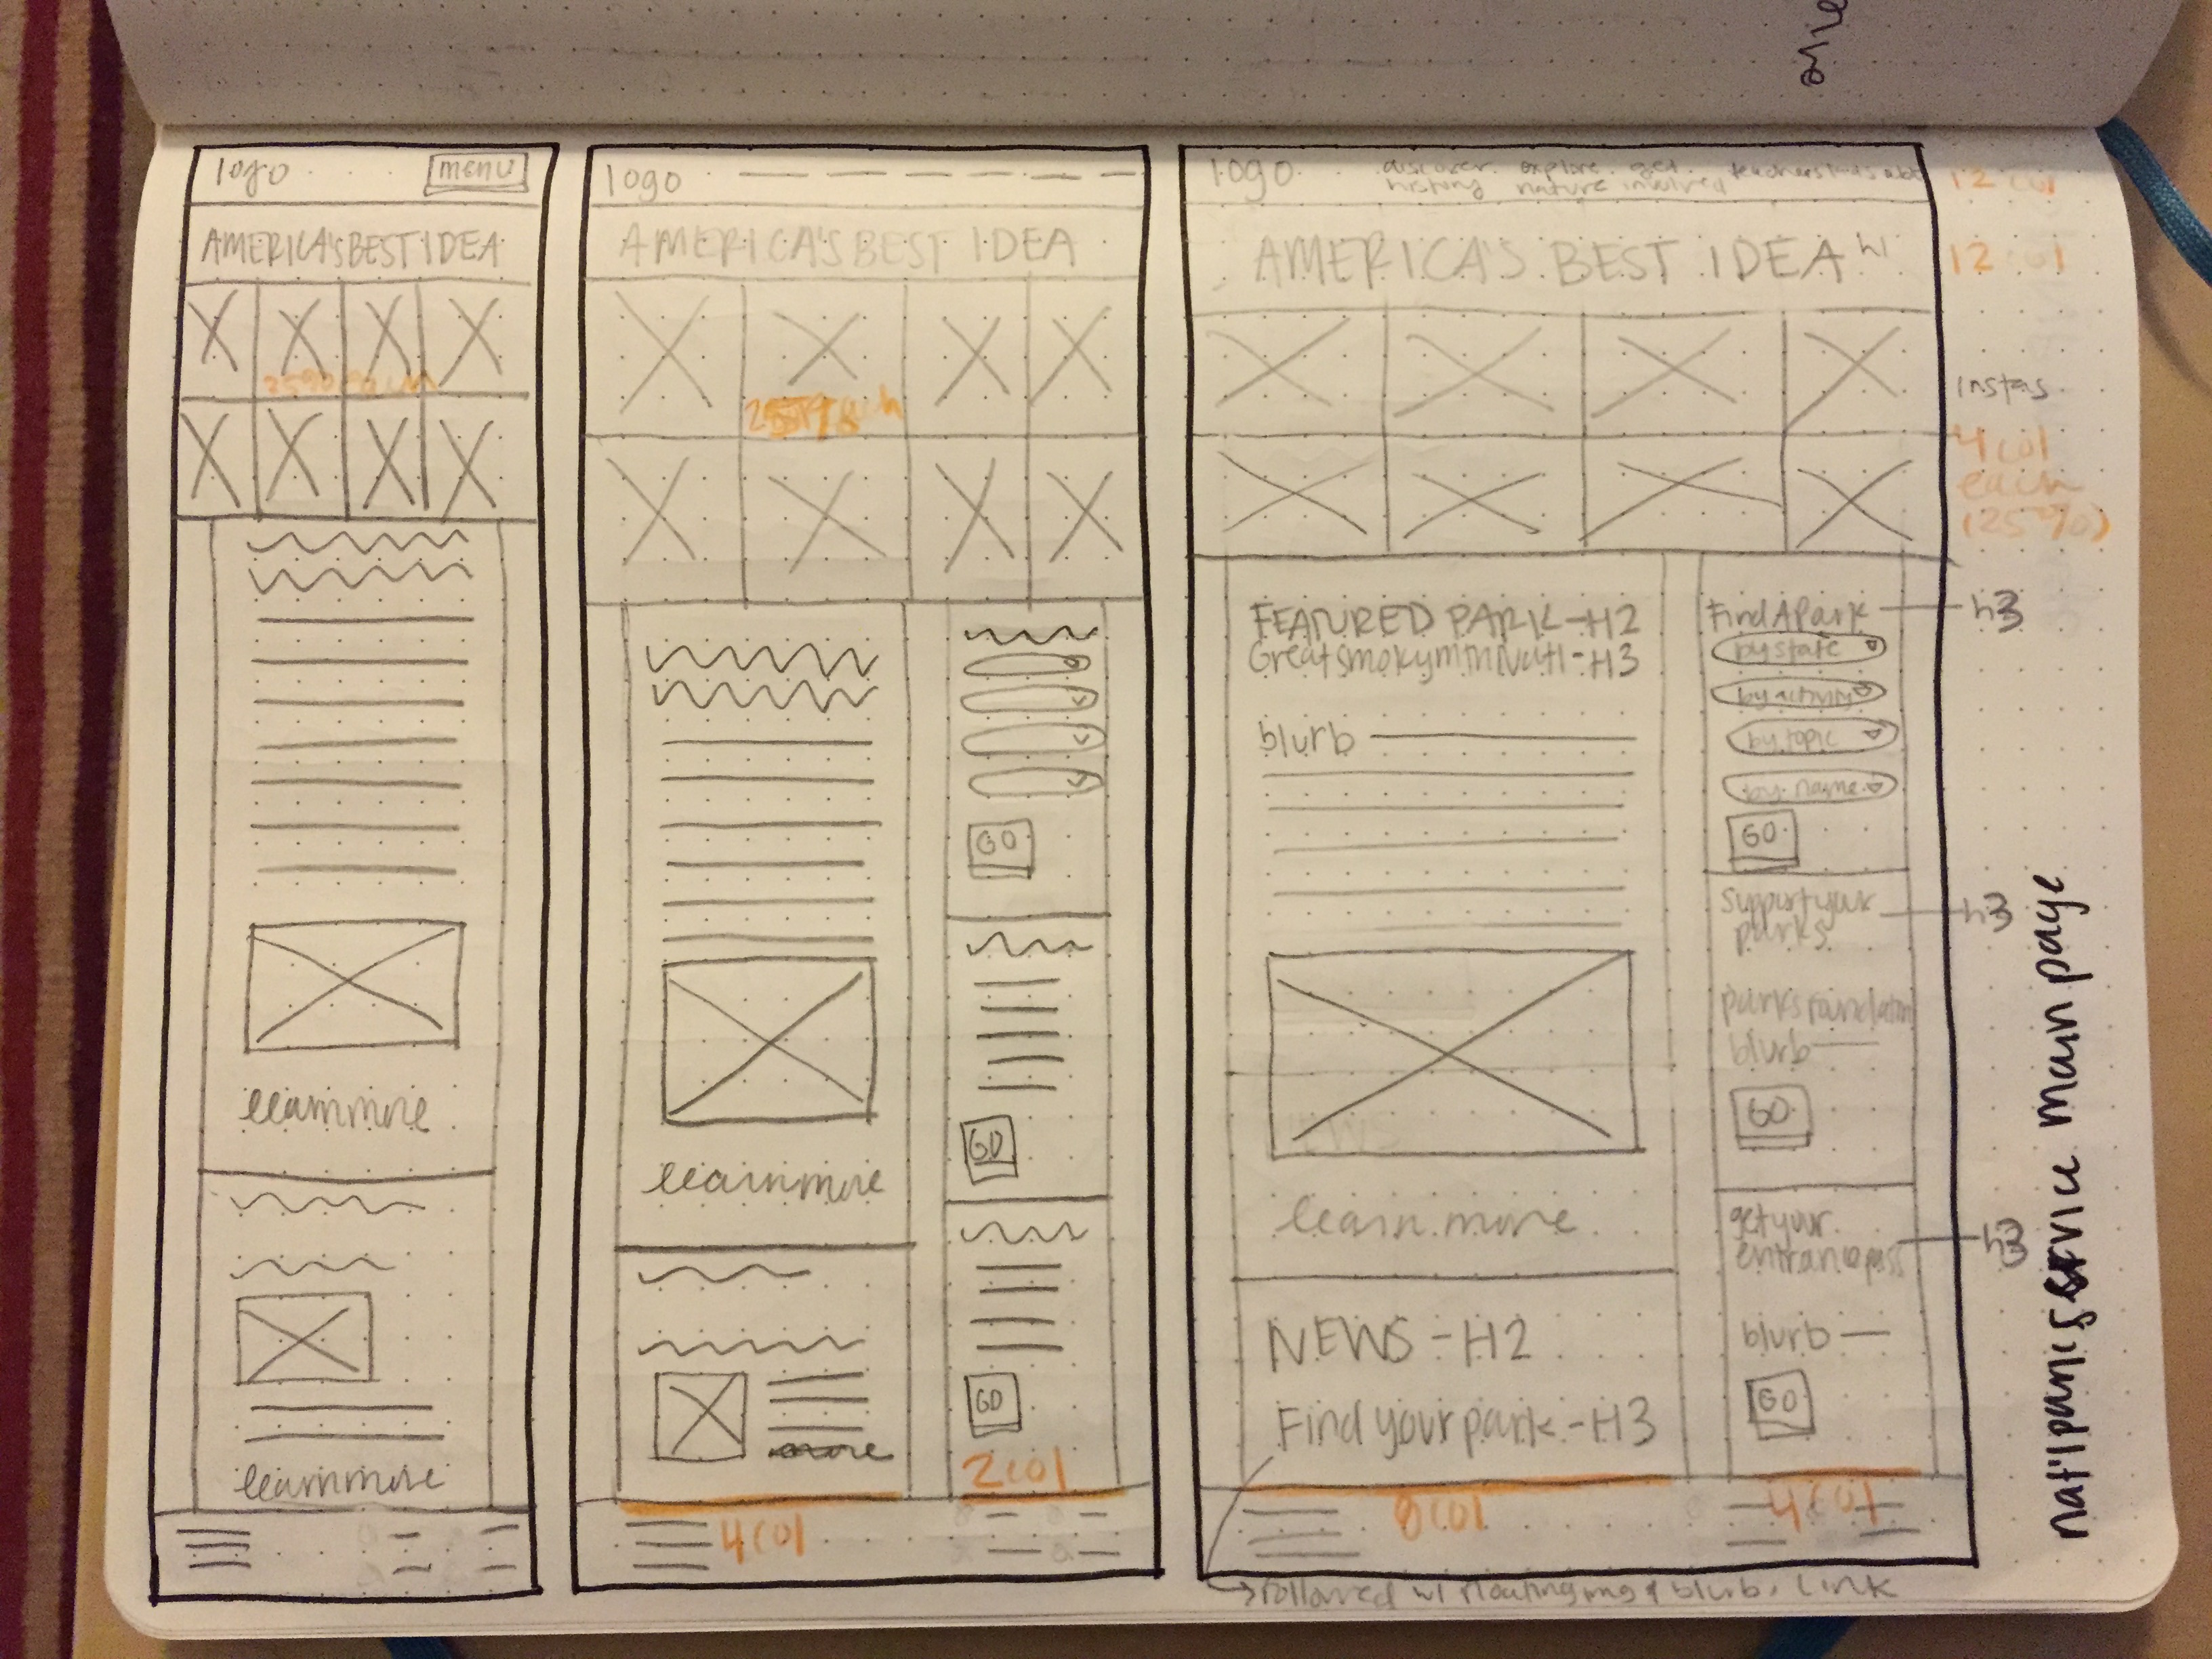 logo menu
AMERICA'S BEST IDEA
25% each
learn more
learn more
logo
AMERICA'S BEST IDEA
GO
learn more
GO
GO
more
2 col
4 col
logo discover explore get teachers kids
history nature involved
12 col
AMERICA'S BEST IDEA h1
12 col
instas
4 col
each
(25%)
FEATURED PARK - H2
Great smoky mtn - H3
blurb
learn more
NEWS - H2
Find your park - H3
8 col
Find A Park h3
by state
by activity
by topic
by name
GO
support your h3
parks
parks foundation
blurb
GO
get your
entrance pass h3
blurb
GO
4 col
followed w/ floating img & blurb, link
main page